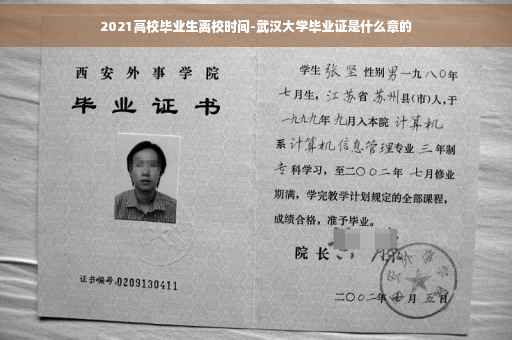 2021高校毕业生离校时间-武汉大学毕业证是什么章的
西安外事学院
毕业证书
证书编号:0209130411
学生 张坚 性别 男 一九八〇年
七月生, 江苏省 苏州县(市)人,于
一九九九年 九月入本院 计算机
系 计算机信息管理专业 三 年制
专科学习,至二〇〇二年 七月修业
期满,学完教学计划规定的全部课程,
成绩合格,准予毕业。
院长
二〇〇二年 月 五日